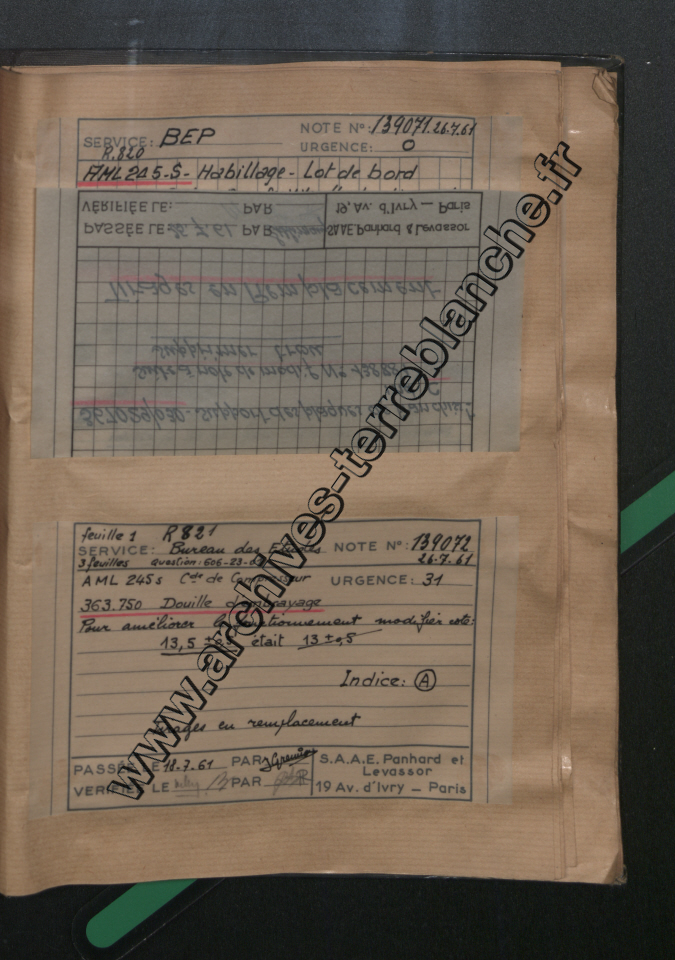 SERVICE: BEP
NOTE N°: 139071. 26.7.61
R.820
URGENCE: O
AML 245-S- Habillage - Lot de bord
VÉRIFIÉE LE: PAR
19, Av. d'Ivry — Paris
PASSÉE LE 26.7.61 PAR
S.A.A.E. Panhard & Levassor
Tirages en Remplacement
supprimer trou
Suite à note de modif N°
367029/030 - Support des plaques
feuille 1 R 821
SERVICE: Bureau des Etudes NOTE N°: 139072
3 feuilles question: 606-23- 26.7.61
AML 245s Cde de Compresseur URGENCE: 31
363.750 Douille d'embrayage
Pour améliorer fonctionnement modifier cote:
13,5 était 13 ±0,5
Indice: A
Tirages en remplacement
PASSÉE LE 18.7.61 PAR
S.A.A.E. Panhard et
Levassor
VERIFIÉE LE PAR
19 Av. d'Ivry — Paris
www.archives-terreblanche.fr